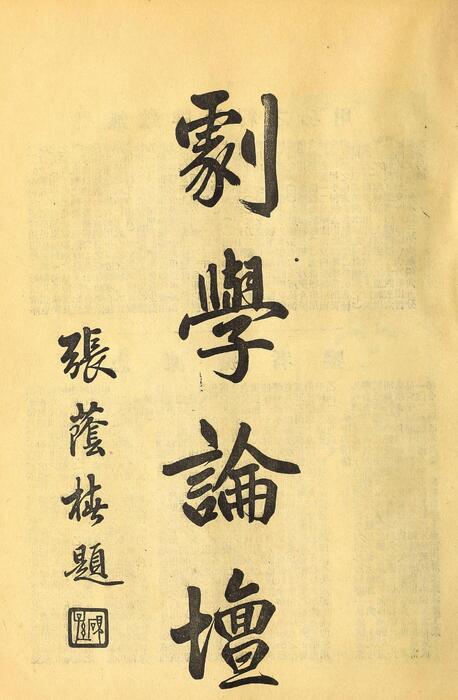 劇學論壇
張蔭椿題